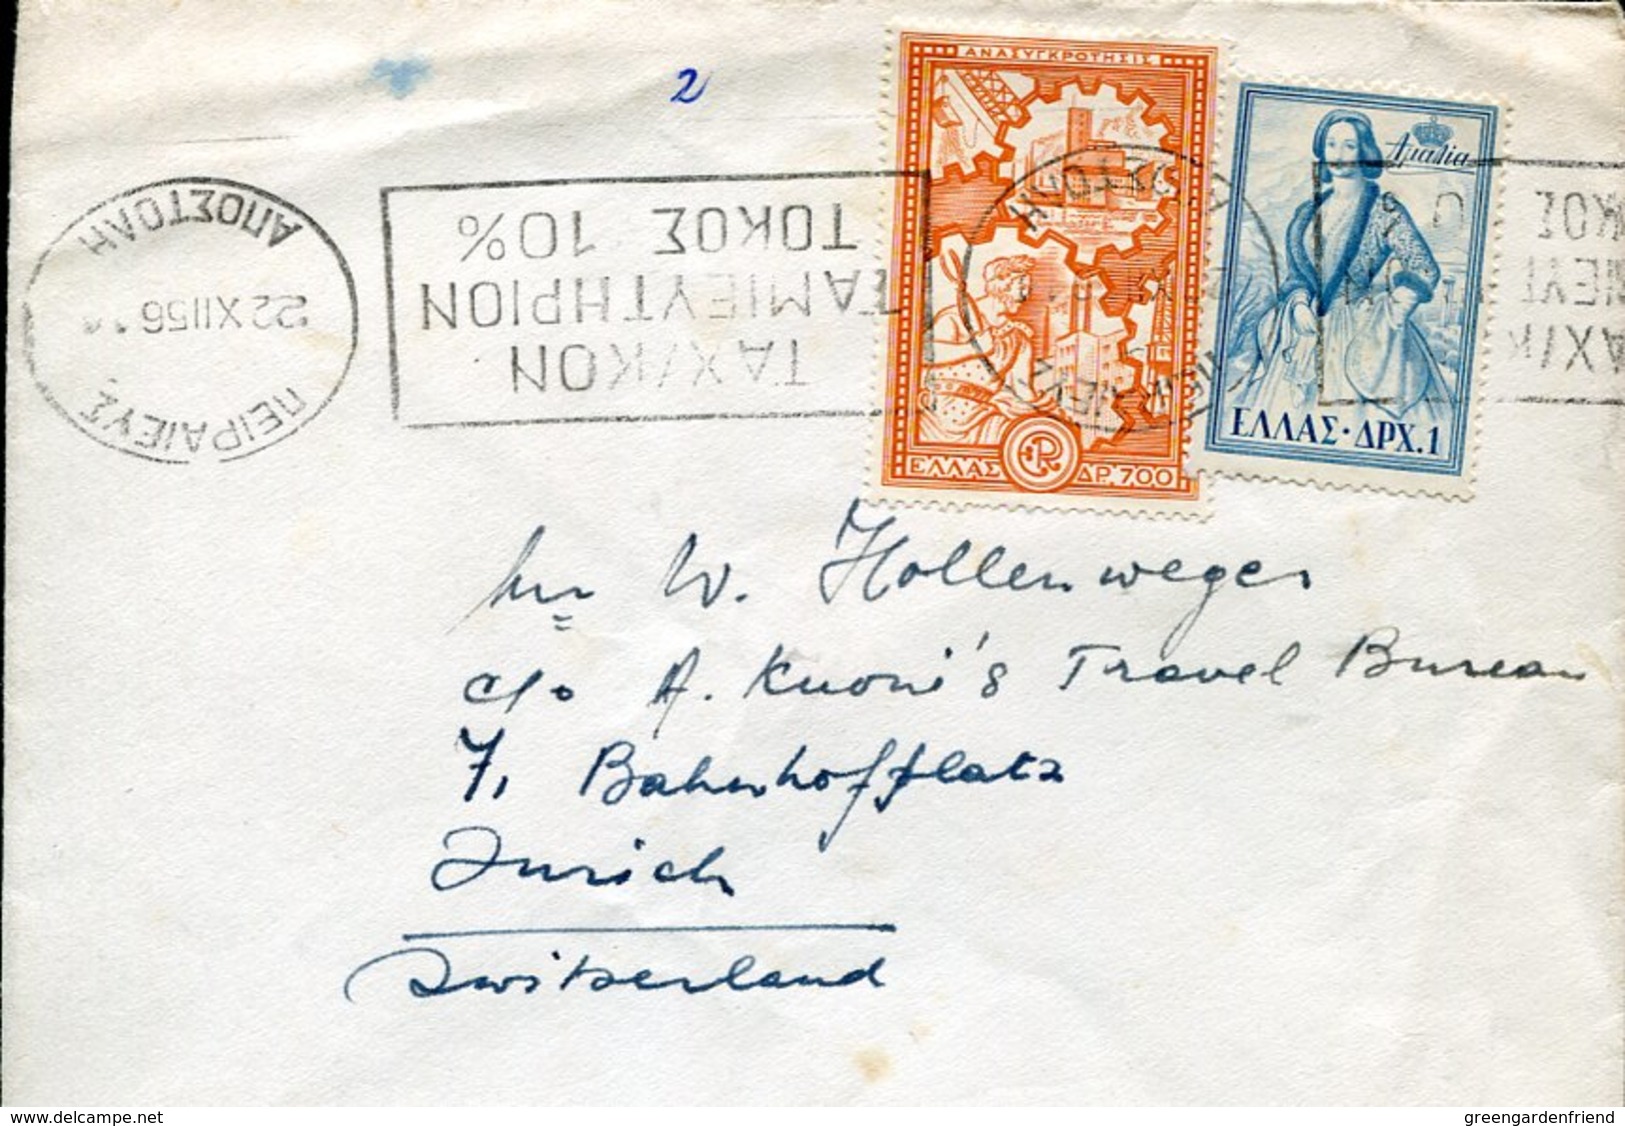 2
ΑΝΑΣΥΓΚΡΟΤΗΣΙΣ
ΕΛΛΑΣ R ΔΡ. 700
Αμαλία
ΕΛΛΑΣ · ΔΡΧ. 1
ΠΕΙΡΑΙΕΥΣ
22 XII 56
ΑΠΟΣΤΟΛΗ
ΤΑΧ/ΚΟΝ
ΤΑΜΙΕΥΤΗΡΙΟΝ
ΤΟΚΟΣ 10%
W. Hollenweger
c/o A. Kuoni's Travel Bureau
7, Bahnhofplatz
Zurich
Switzerland
www.delcampe.net
greengardenfriend